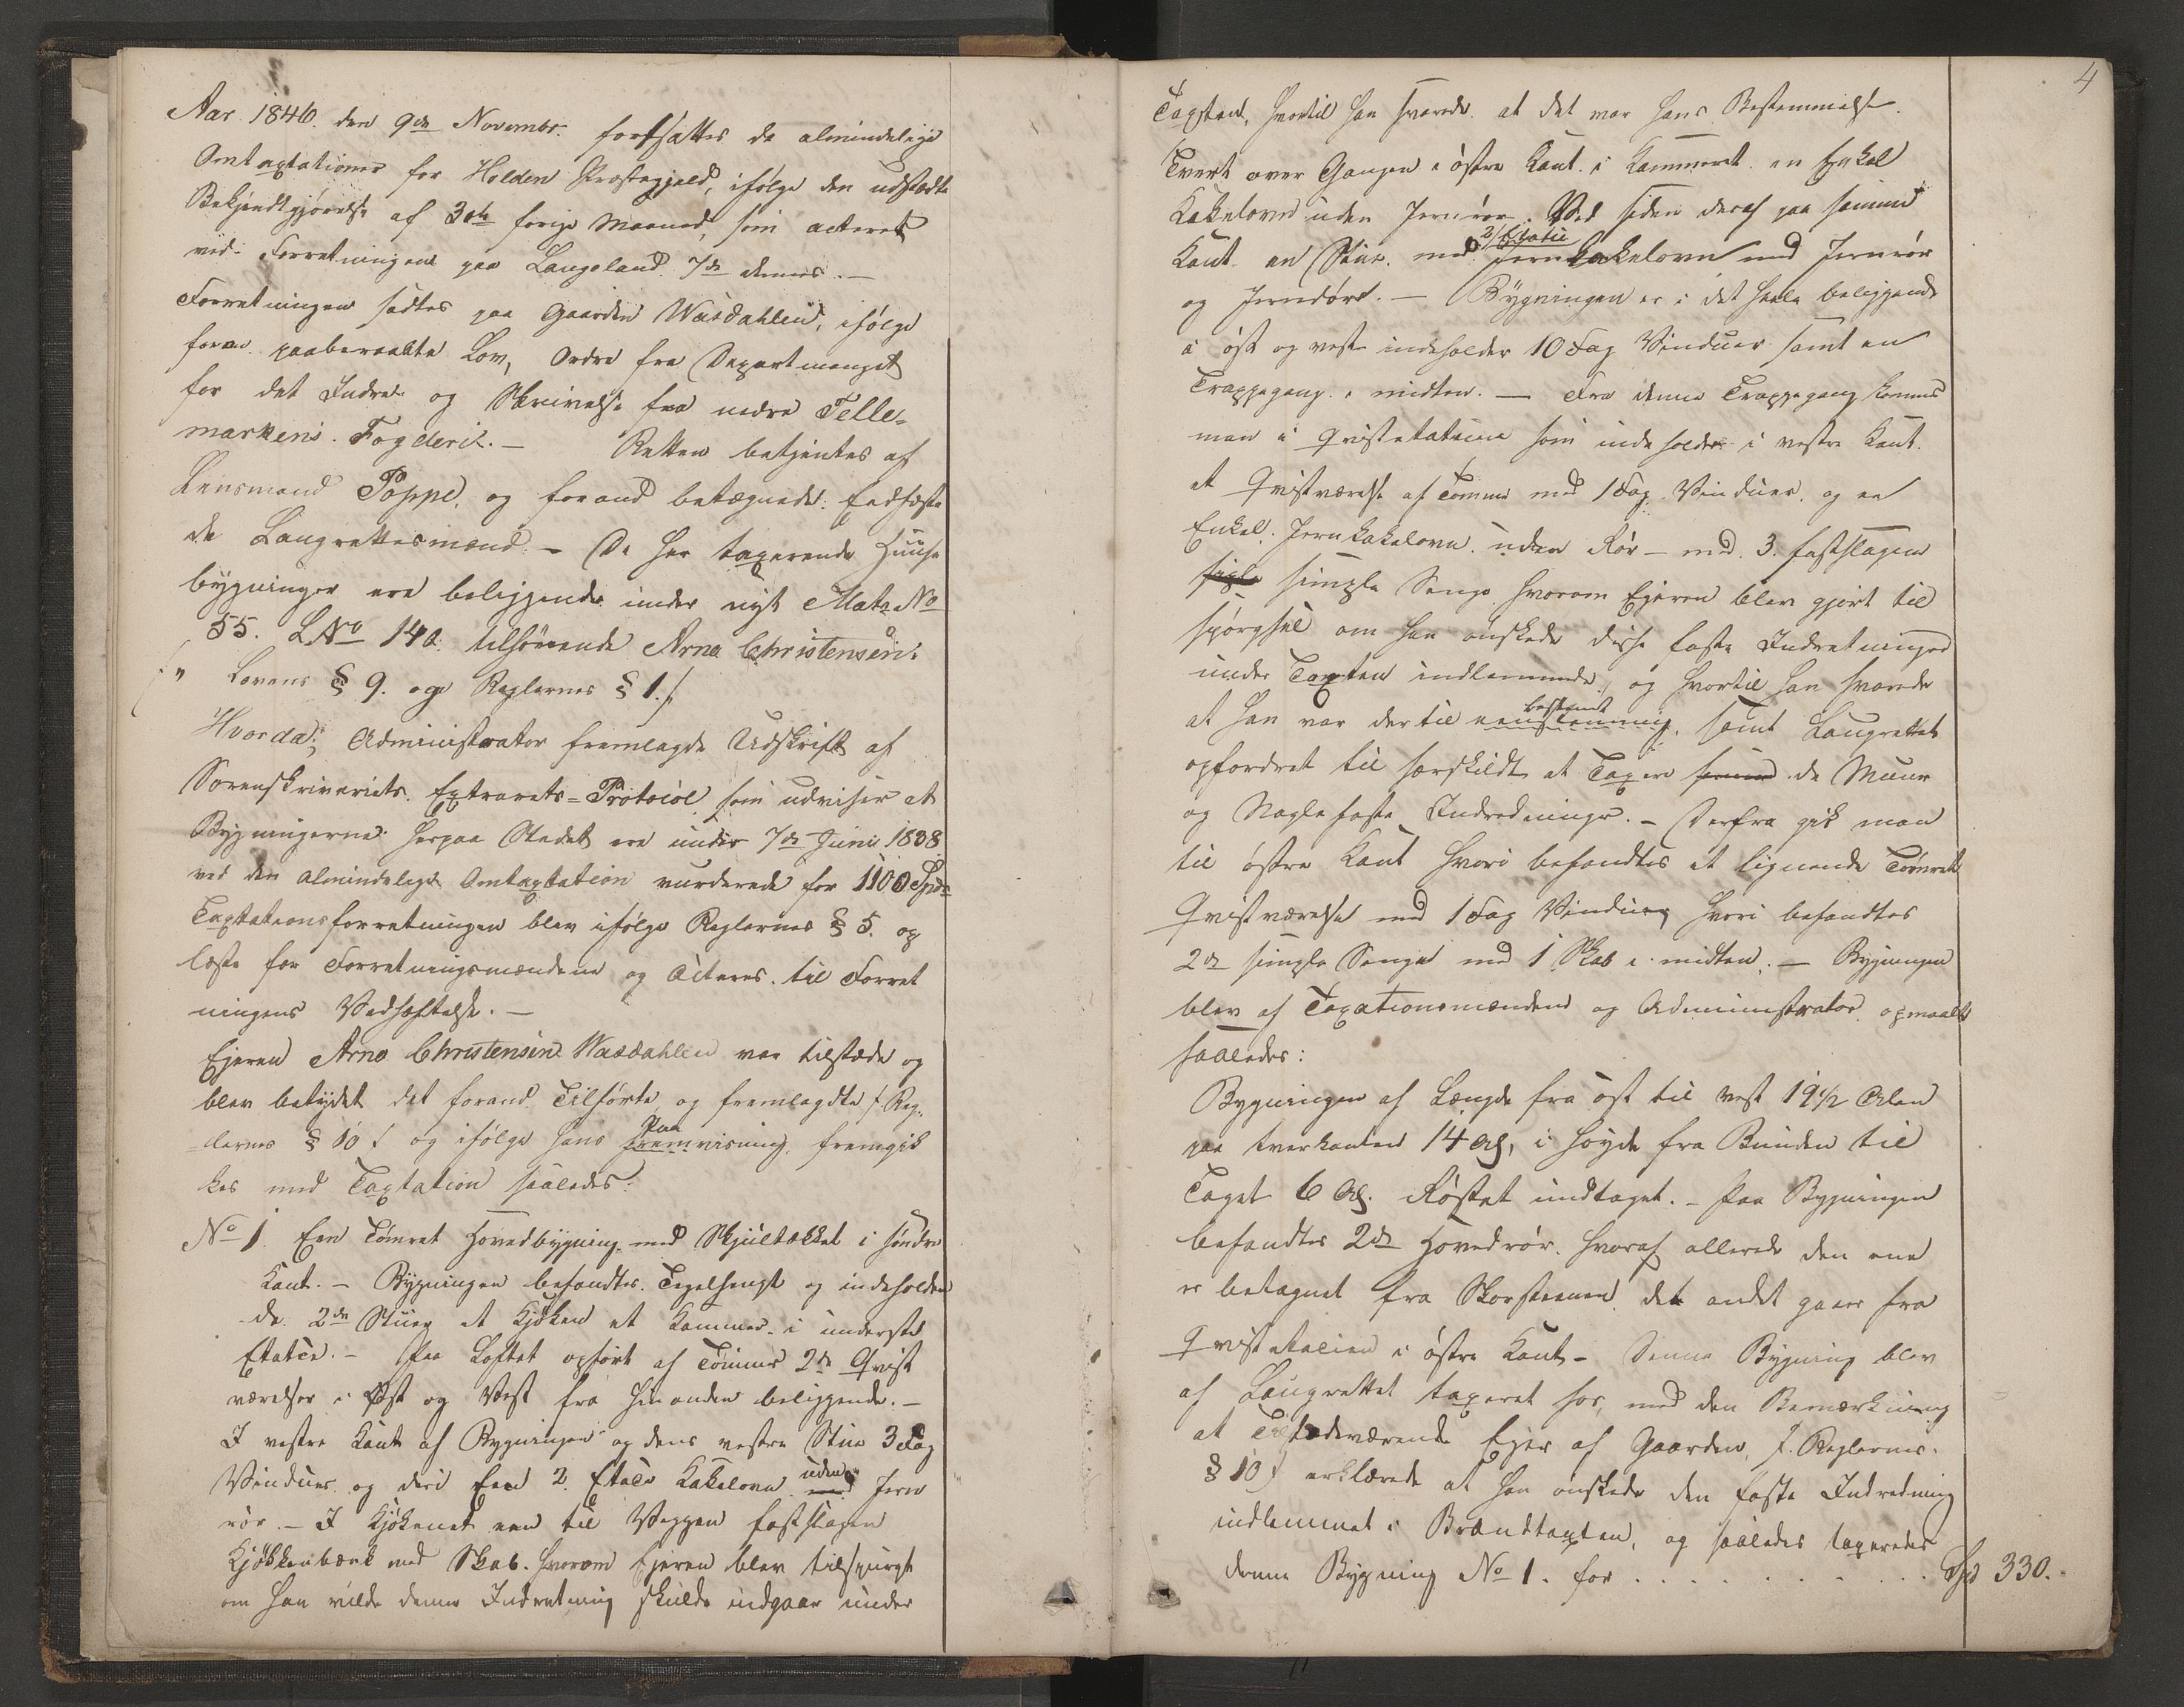 Aar 1846. den 9de Novembr. fortsattes de almindelige
Omtaxtationer for Holden Præstegjeld, ifølge den udstædte
Bekjendtgjørelse af 30te forige Maaned, som acteret
ved Forretningen paa Langeland 7de dennes. —
Forretningen sadtes paa Gaarden Wasdahlen, ifølge
foran paaberaabte Lov, Ordre fra Departmenget
for det Indre og Skrivelse fra nedre Telle=
markens Fogderie. — Retten betjentes af
Lensmand Poppe, og forand betegnede Eedfæste
de Laugrettesmænd. — De her taxerende Huuse
bygninger ere beliggende under nyt Matr No
55. LNo 14a tilhørende Arne Christensen.
" Lovens § 9. og Reglernes § 1./.
Hvorda; Administrator fremlagde Udskrift af
Sorenskriveriets Extrarets=Protocol som udviser at
Bygningerne herpaa Stedet ere under 7de Juni 1838
ved den almindelige Omtaxtation vurderede for 1100 Spd
Taxtationsforretningen blev ifølge Reglernes § 5. op
læste for Forretningsmændene og Acteres til Forret
ningens Vedhæftelse. —
Ejeren Arne Christensen Wasdahlen var tilstæde og
blev betydet det forand Tilførte og fremlagdte /: Reg-
lernes § 10 / og ifølge hans fremvisning, fremgik
Paa
kes med Taxtation saaledes:
No 1 Een Tømret Hovedbygning med Skjultækket i søndre
Kant. — Bygningen befandtes Tegelhengt og indeholden
de 2de Stuer et Kjøken et Kammer i underste
Etatce. — Paa Loftet opført af Tømmer 2de Qvist
værelser i Øst og Vest fra hinanden beliggende. —
I vestre Kant af Bygningen og dens vestre Stue 3 Fag
Vinduer og deri Een 2 Etace Kakelovn uden Jern
rør. — I Kjøkenet een til Væggen fastslagen
Kjøkkenbænk med Skab. hvorom Ejeren blev tilspurgt
om han vilde denne Indretning skulde indgaae under
4
Taxten, hvortil han svarede at det var hans Bestemmelse.
Tvert over Gangen i østre Kant i Kammeret en Enkel
Kakelovn uden Jernrør. Ved siden deraf paa samme
Kant en Stue med Jernkakelovn med Jernrør
2/Etatce
og Jerndøre. — Bygningen er i det heele beliggende
i øst og vest indeholder 10 Fag Vinduer samt en
Trappegang i midten. — Fra denne Trappegang kommes
man i Qvistetatcen som indeholder i vestre Kant.
et Qvistværelse af Tømmer med 1 Fag Vinduer, og en
Enkel Jernkakelovn uden Rør — med 3. fastslagen
simple Senge hvorom Ejeren blev gjort til
spørgsel om han ønskede disse faste Indretninger
under Taxten indlemmede, og hvortil han svarede
at han var dertil eenstemmig, samt Laugrettet
bestemt
opfordret til særskildt at Taxere de Muur
og Naglefaste Indredninger. — Derfra gik man
til østre Kant hvori befandtes et lignende Tømret
Qvistværelse med 1 Fag Vinduer hvori befandtes
2de simple Senge med 1 Skab i midten. — Bygningen
blev af Taxationsmændene og Administrator opmaalt
saaledes:
Bygningen af Længde fra øst til vest 19 1/2 Alen
paa tverkanten 14 Al, i høyde fra Bunden til
Taget 6 Al. Røstet undtaget. — Paa Bygningen
befandtes 2de Hovedrør. hvoraf allerede den ene
er betegnet fra Skorsteenen det andet gaaer fra
Qvistetalien i østre Kant — Denne Bygning blev
af Laugrettet taxeret for, med den Bemærkning
at Tilstædeværende Ejer af Gaarden, /: Reglernes
§ 10 / erklærede at han ønskede den faste Indredning
indlemmet i Brandtaxten, og saaledes taxeredes
denne Bygning No 1. for . . . . . . . . Spd 330.